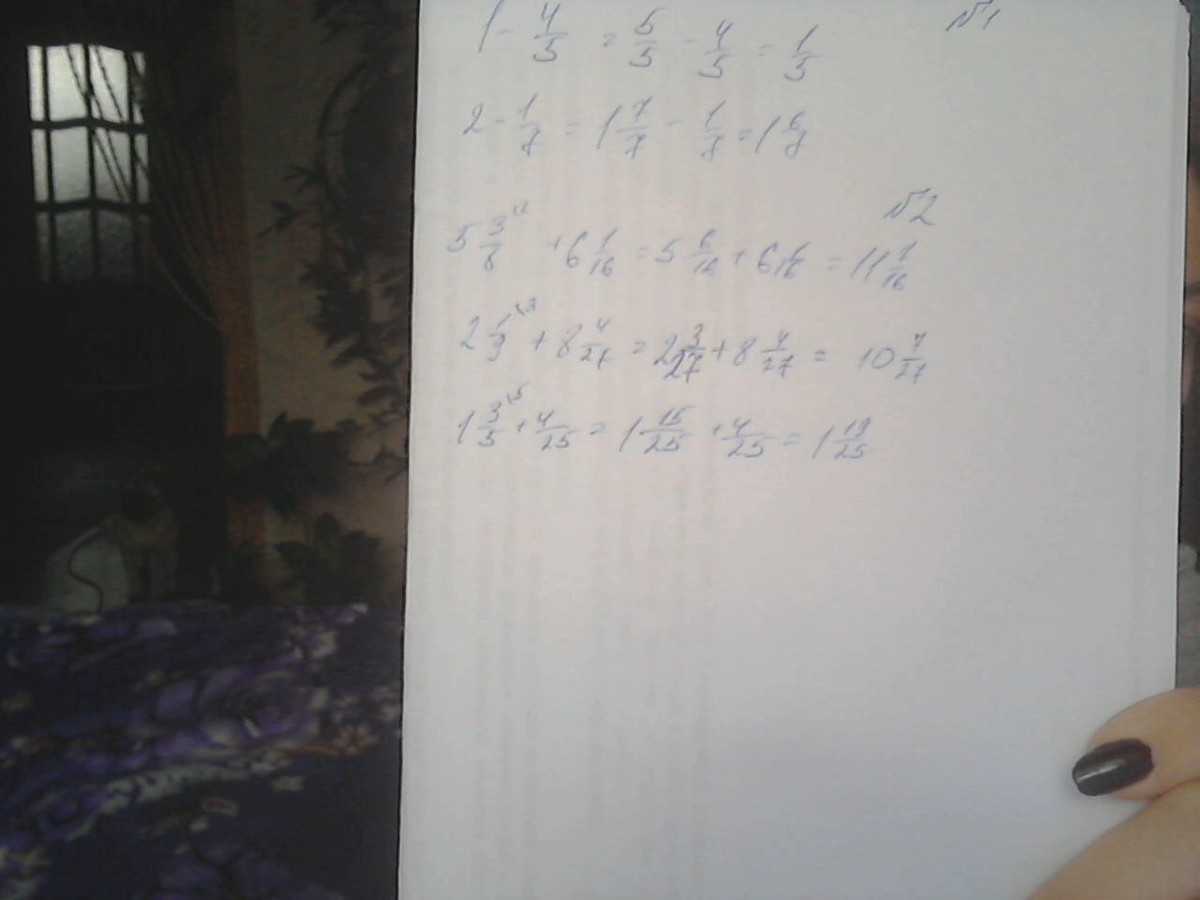 №1
1 - 4/5 = 5/5 - 4/5 = 1/5
2 - 1/7 = 1 7/7 - 1/7 = 1 6/7
№2
5 3/8 ^(2 + 6 1/16 = 5 6/16 + 6 1/16 = 11 7/16
2 1/9 ^(3 + 8 4/27 = 2 3/27 + 8 4/27 = 10 7/27
1 3/5 ^(5 + 4/25 = 1 15/25 + 4/25 = 1 19/25